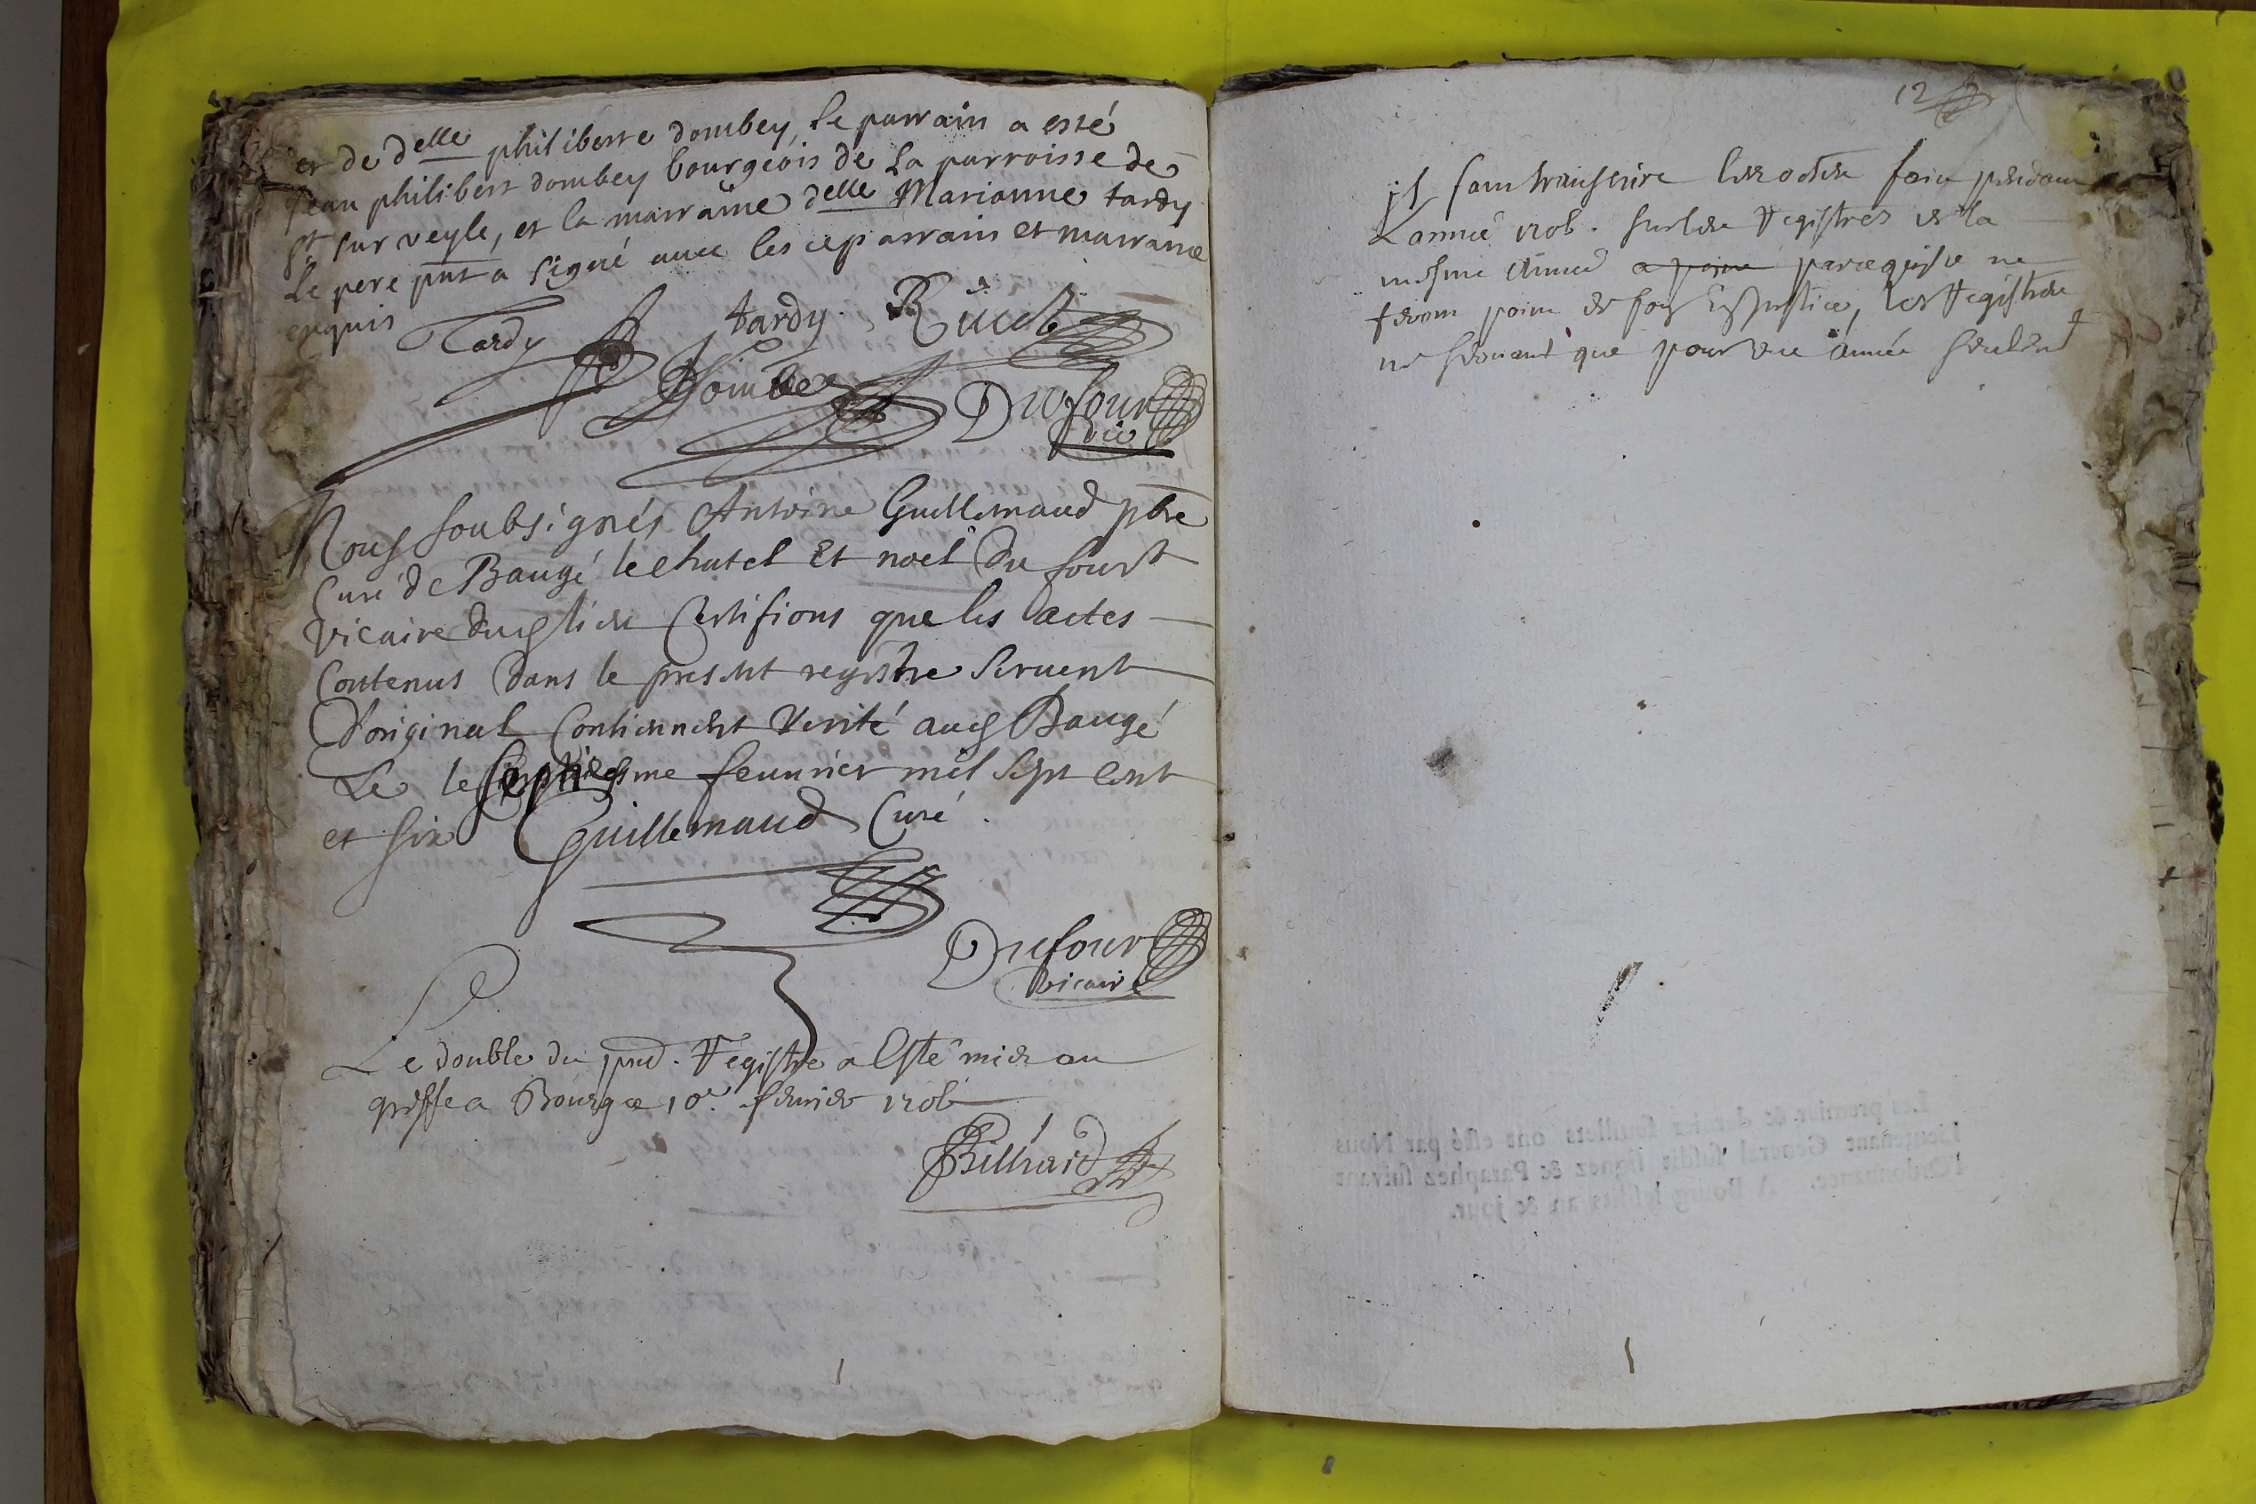 et de delle philiberte dombey, le parrain a esté
Jean philibert dombey bourgeois de La parroisse de
st sur veyle, et la marraine delle Marianne tardy
Le pere pnt a signé avec les parrain et marraine
enquis Tardy tardy
Dombey Dufour
vic
Nous soubsignés Antoine Guillemaud pbre
Curé de Baugé le chatel Et noel Du four
vicaire dud lieu Certifions que les actes
Contenus dans le present registre servent
D'original Contiennent Verité aud Baugé
Le le septiesme feuvrier mil sept cent
et six Guillemaud Curé.
Dufour
vicaire
Le double du pnt. Registre a Esté mis au
greffe a Bourg ce 10e. fevrier 1706
Billiard
12
il faut transcrire les actes faits pendant
L'année 1706. sur les Registres de la
mesme année a peine parcequ'ils ne
feront point de foy En Justice, les Registres
ne servant que pour une année seulemt
Les premier & dernier feuillets ont esté par Nous
Lieutenant General susdit signez & Paraphez suivant
l'Ordonnance. A Bourg lesdits an & jour.